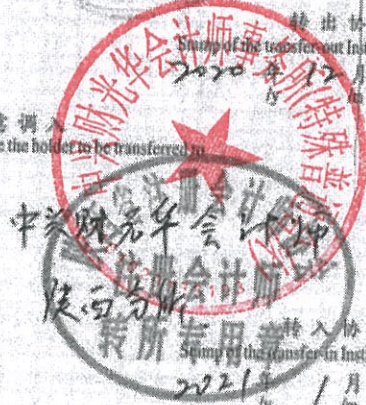 转出协
Stamp of the transfer-out Inst
2020年12月
/y /m
意调入
e the holder to be transferred to
中兴财光华会计师事务所(特殊普通
中兴财光华会计师
陕西分所
注册会计师
转所专用章
转入协
Stamp of the transfer-in Inst
2021年1月
/y /m